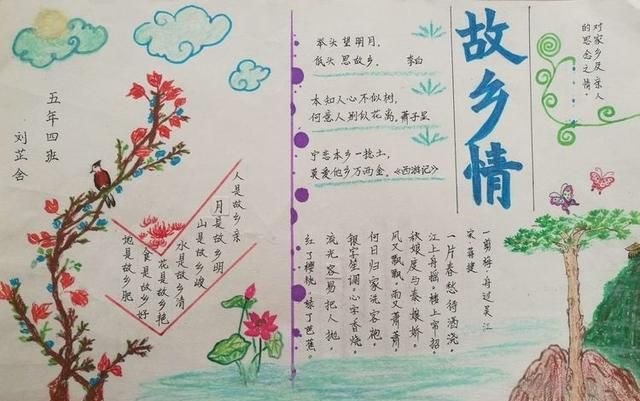 故乡情
对家乡及亲人
的思念之情。
举头望明月，
低头思故乡。 李白
本知人心不似树，
何意人别似花离 萧子显
宁恋本乡一捻土，
莫爱他乡万两金。《西游记》
五年四班
刘芷含
人是故乡亲
月是故乡明
山是故乡峻
水是故乡清
花是故乡艳
食是故乡好
地是故乡肥
一剪梅·舟过吴江
宋·蒋捷
一片春愁待酒浇。
江上舟摇。楼上帘招。
秋娘度与泰娘娇。
风又飘飘。雨又萧萧。
何日归家洗客袍。
银字笙调。心字香烧。
流光容易把人抛。
红了樱桃。绿了芭蕉。